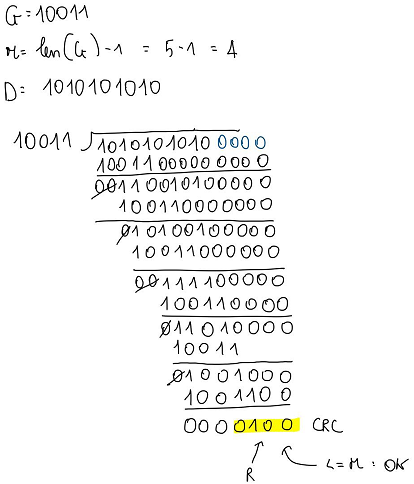 G=10011
r= len(G)-1 = 5-1 = 4
D= 1010101010
10011 10101010100000
10011000000000
00110010100000
100110000000
0101001000000
10011000000
00111100000
1001100000
0110100000
10011
01001000
1001100
0000100 CRC
R L=r: OK